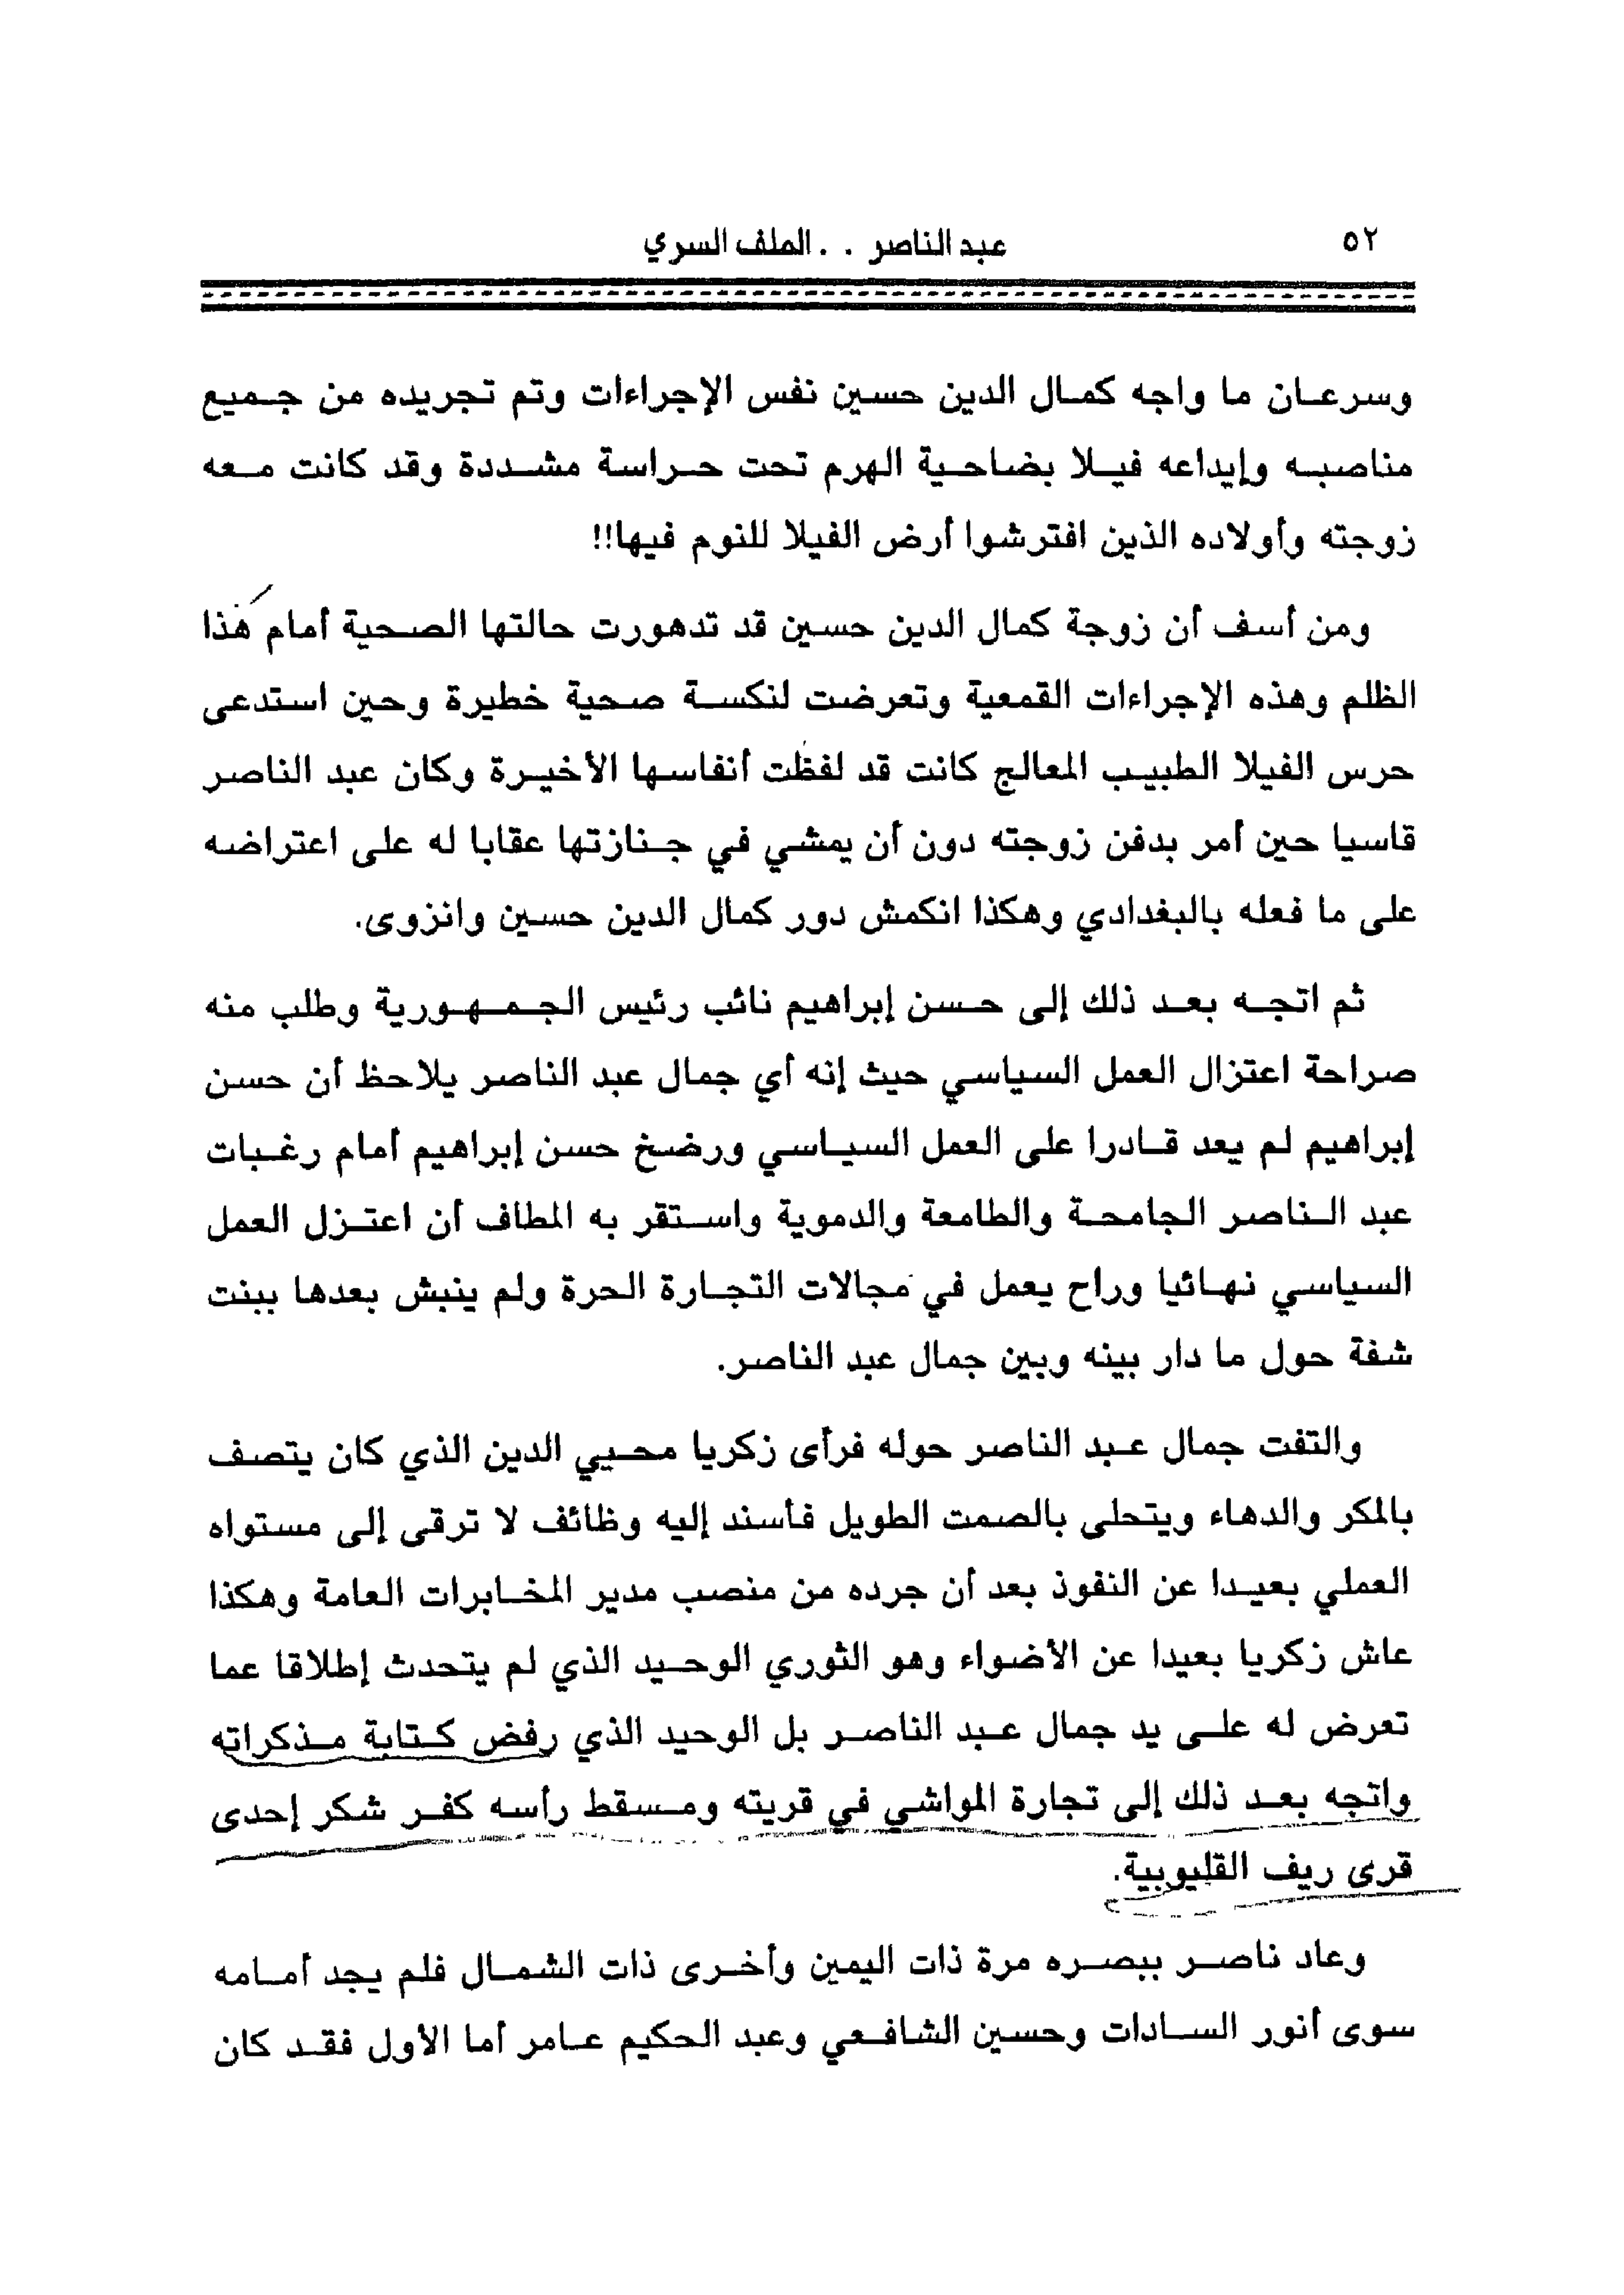 ٥٢
عبد الناصر . . الملف السري
وسرعان ما واجه كمال الدين حسين نفس الإجراءات وتم تجريده من جميع
مناصبه وإيداعه فيلا بضاحية الهرم تحت حراسة مشددة وقد كانت معه
زوجته وأولاده الذين افترشوا أرض الفيلا للنوم فيها!!
ومن أسف أن زوجة كمال الدين حسين قد تدهورت حالتها الصحية أمام هذا
الظلم وهذه الإجراءات القمعية وتعرضت لنكسة صحية خطيرة وحين استدعى
حرس الفيلا الطبيب المعالج كانت قد لفظت أنفاسها الأخيرة وكان عبد الناصر
قاسيا حين أمر بدفن زوجته دون أن يمشي في جنازتها عقابا له على اعتراضه
على ما فعله بالبغدادي وهكذا انكمش دور كمال الدين حسين وانزوى.
ثم اتجه بعد ذلك إلى حسن إبراهيم نائب رئيس الجمهورية وطلب منه
صراحة اعتزال العمل السياسي حيث إنه أي جمال عبد الناصر يلاحظ أن حسن
إبراهيم لم يعد قادرا على العمل السياسي ورضخ حسن إبراهيم أمام رغبات
عبد الناصر الجامحة والطامعة والدموية واستقر به المطاف أن اعتزل العمل
السياسي نهائيا وراح يعمل في مجالات التجارة الحرة ولم ينبش بعدها ببنت
شفة حول ما دار بينه وبين جمال عبد الناصر.
والتفت جمال عبد الناصر حوله فرأى زكريا محيي الدين الذي كان يتصف
بالمكر والدهاء ويتحلى بالصمت الطويل فأسند إليه وظائف لا ترقى إلى مستواه
العملي بعيدا عن النفوذ بعد أن جرده من منصب مدير المخابرات العامة وهكذا
عاش زكريا بعيدا عن الأضواء وهو الثوري الوحيد الذي لم يتحدث إطلاقا عما
تعرض له على يد جمال عبد الناصر بل الوحيد الذي رفض كتابة مذكراته
واتجه بعد ذلك إلى تجارة المواشي في قريته ومسقط رأسه كفر شكر إحدى
قرى ريف القليوبية.
وعاد ناصر ببصره مرة ذات اليمين وأخرى ذات الشمال فلم يجد أمامه
سوى أنور السادات وحسين الشافعي وعبد الحكيم عامر أما الأول فقد كان